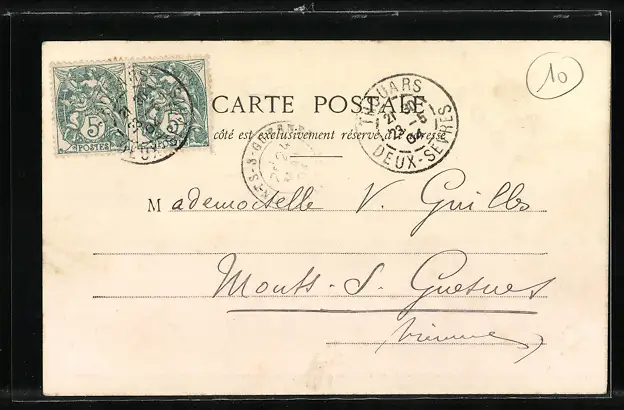 10
5 5
POSTES
CARTE POSTALE
côté est exclusivement réservé à l'adresse
THOUARS
DEUX-SEVRES
Mademoiselle V.
Monts-s-Guesnes
Vienne